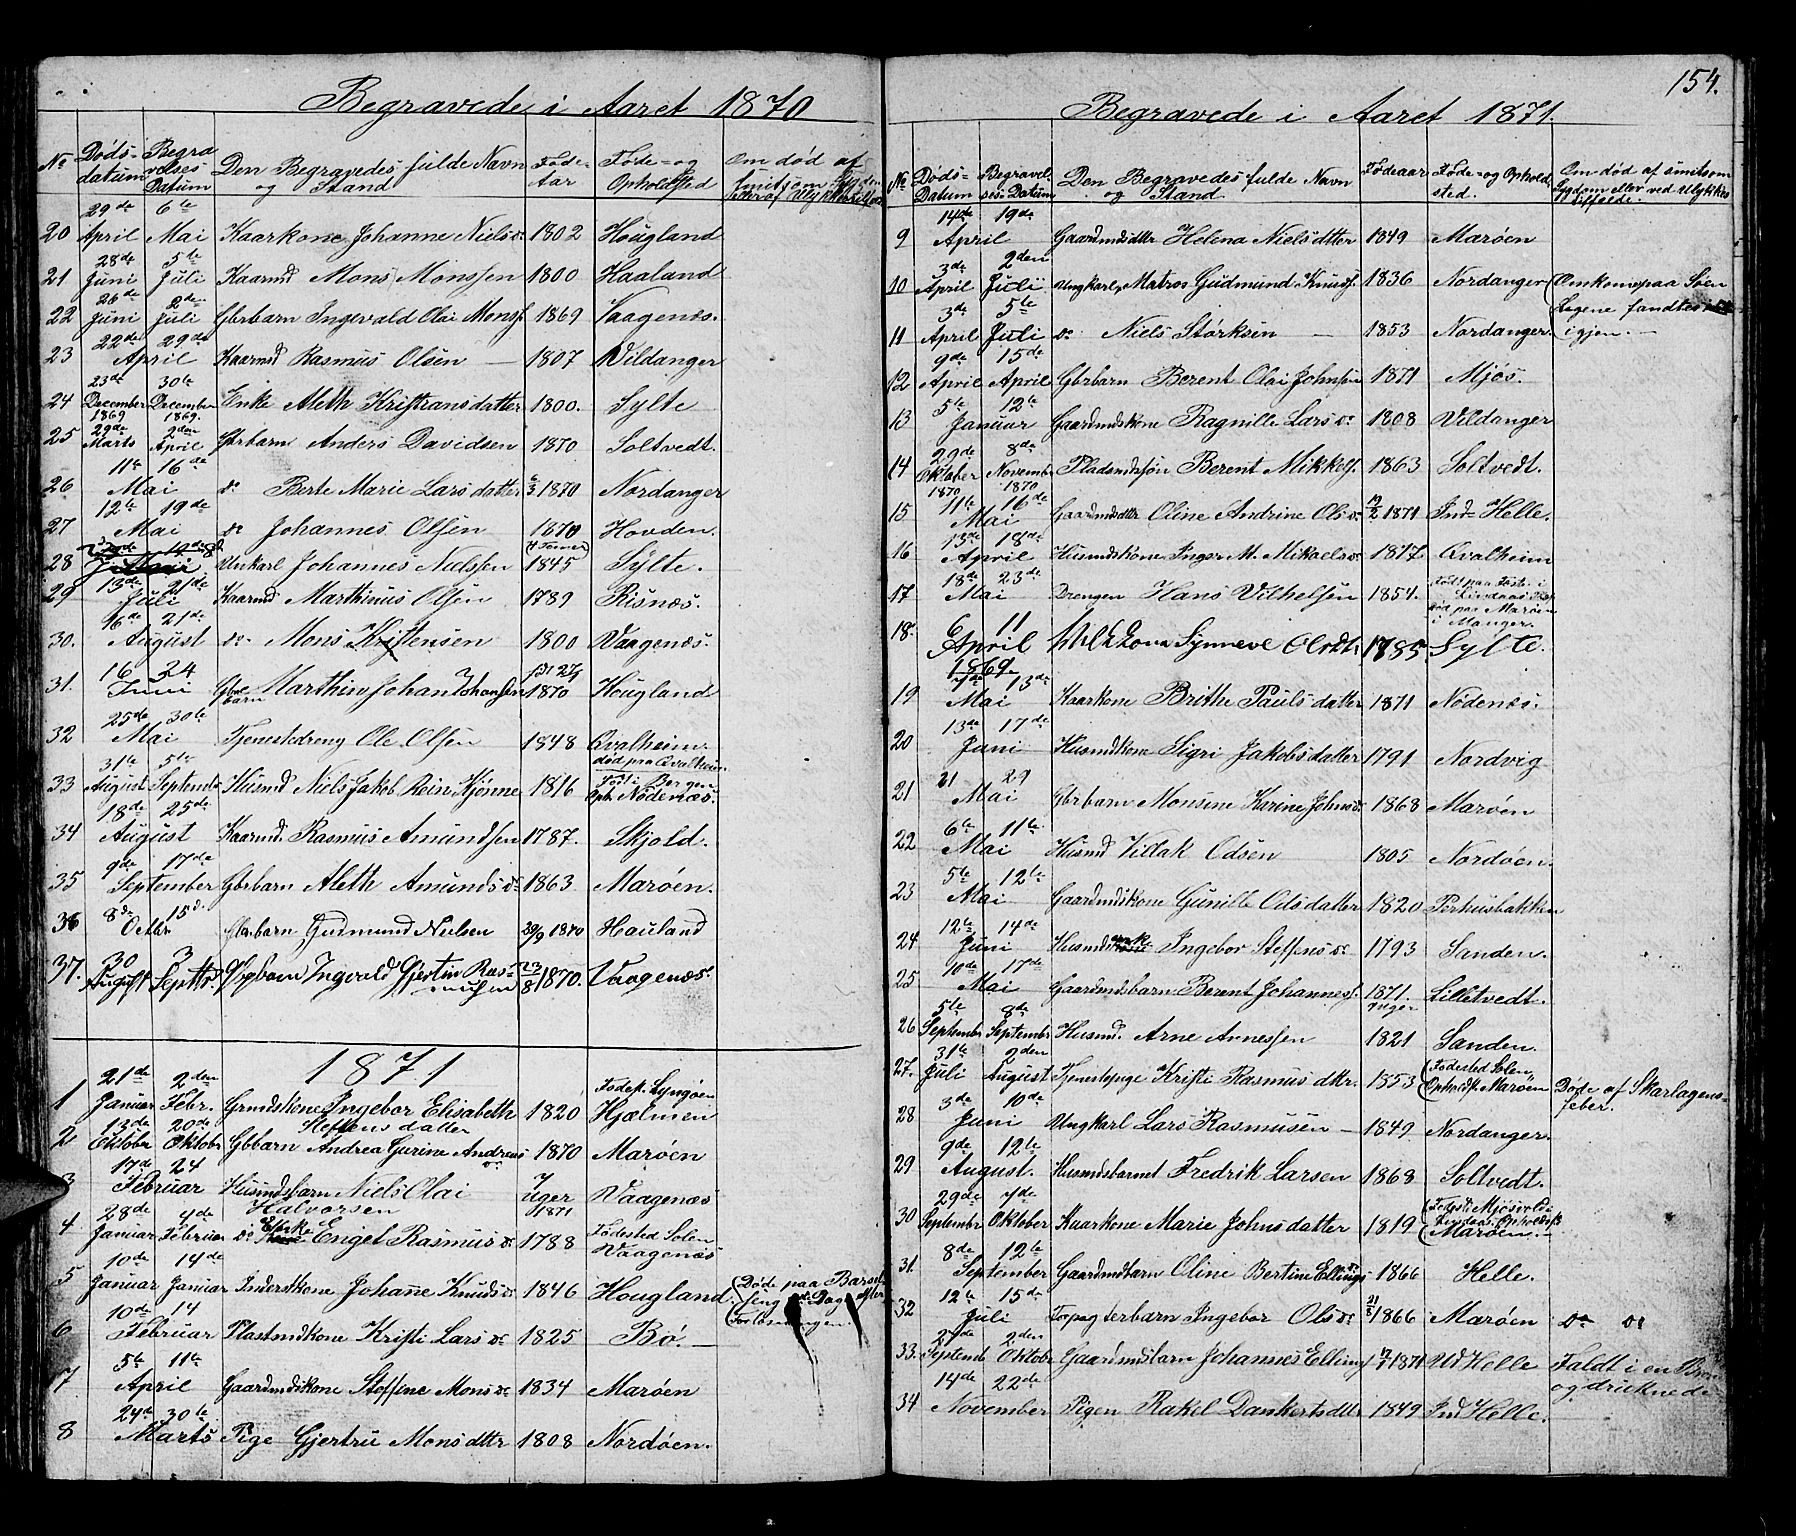 Begravede i Aaret 1870
No Døds-datum Begravelses Datum Den Begravedes fulde Navn og Stand Føde-Aar Føde- og Opholdssted Om død af
20 29de April 6te Mai Kaarkone Johanne Nielsdr 1802 Hougland
21 28de Juni 5te Juli Kaarmd Mons Monssen 1800 Haaland
22 26de Juni 2den Juli Gbrbarn Ingevald Olai Monss. 1869 Vaagenæs.
23 22de 29de April Kaarmd Rasmus Olsen — 1807 Vildanger
24 23de December 1869 30te December 1869. Enke Aleth Kristransdatter 1800. Sylte
25 29de Marts 2den April Gbrbarn Anders Davidsen 1870 Soltvedt.
26 11te 16de Mai do Berte Marie Larsdatter 6/3 1870 Nordanger
27 12te 19de Mai do Johannes Olsen 1870 Hovden.
28 Unkarl Johannes Nielssen 1845 Sylte.
29 13de 21de Juli Kaarmd Marthinus Olsen 1789 Risnæs.
30. 16de 21de August do Mons Kristensen 1800 Vaagenæs.
31. 16 24 Juni Gbrbarn Marthin Johan Johansen 1870 Hougland
32 25de 30te Mai Tjenestedreng Ole Olsen 1848 Qvalheim. død paa Qvalheim.
33 31te August 5te Septembr Husmd Niels Jakob Rein Hjønne 1816 Født i Bergen Oph. Nødenæs.
34 18de 25de August Kaarmd. Rasmus Amundsen 1787. Skjold.
35 9de 17de September Gbrbarn Aleth Amundsdr 1863 Marøen.
36 8de 15de Octbr Gbrbarn Gudmund Nielsen 29/9 1870 Hauland
37. 30 August 3 Septbr. Ingvald Gjertin Rasmussen 23/8 1870. Vaagenæs.
1871
1 21de Januar 2den Febr. Grmdskone Ingebor Elisabeth Steffensdatter 1820 Fødest. Lyngøen Hjælmen
2 13de Oktobr 20de Oktobr Gbbarn Andrea Gurine Andreasdr 1870 Marøen
3 17de 24 Februar Husmdsbarn Niels Olai Halvorsen 7 Uger 1871 Vaagenæs
4 28de Januar 4de Februar do Enke Engel Rasmusdr 1788 Fødested Solen Vaagenæs
5 10de Januar 14de Januar Inderskone Johanne Knudsdr 1846 Hougland. Døde paa Barselseng Dag efter Forløsningen.
6 10de 14 Februar Plastmdkone Kristi Larsdr 1825 Bø.
7 5te 11te April Gaardmdskone Steffine Monsdr 1834 Marøen
8 24de 30te Marts Pige Gjertru Monsdttr 1808 Nordøen.
154.
Begravede i Aaret 1871.
No Døds-Datum Begravelses-Datum Den Begravedes fulde Navn og Stand Fødeaar Føde- og Opholdssted. Om død af smitsom Sygdom eller ved Ulykkestilfælde.
9 14de 19de April Gaardmdsdttr Helena Nielsdtter 1849 Marøen
10 3de April 2den Juli Ungkarl, Matros Gudmund Knuds. 1836 Nordanger Omkom paa Søen
11 3de April 5te Juli do Niels Størksen — 1853 Nordanger. Ligene fandtes igjen. —
12 9de April 15de April Gbrbarn Berent Olai Johnsen 1871 Mjøs.
13 5te 12te Januar Gaardmdskone Ragnille Larsdr 1808 Vildanger
14 29de Oktober 1870 8de Novembr 1870 Pladsmdssøn Berent Mikkels. 1863 Soltvedt.
15 11te 16de Mai Gaardmdsdttr Oline Andrine Olsdr 12/2 1871 Ind-Helle.
16 13de 18de April Husmdskone Inger M. Mikaelsdr 1817 Qvalheim
17 18de 23de Mai Drengen Hans Vilhelsen 1854. Født paa Foste i Lindaas død paa Marøen i Manger.
18. 6 11 April 1869 Synneve Olsdt. 1785 Sylte.
19 7de 13de Mai Kaarkone Brithe Paulsdatter 1871 Nødenæs.
20 13de 17de Juni Husmdkone Sigri Jakobsdatter 1791 Nordvig
21 21 29 Mai Gbrbarn Monsine Karine Johnsdr 1868 Marøen
22 6te 11te Mai Husmd Villak Odsen 1805 Nordøen.
23 5te 12te Mai Gaardmdskone Gunille Odsdatter 1820 Perhusbakken
24 12te 14de Juni Husmdsenke Ingebor Steffensdr 1793 Sanden.
25 10de 17de Mai Gaardmdsbarn Berent Johanness. 1871. Lilletvedt.
26 5te Septembr 8de Septembr Husmd. Arne Arnessen 1821 Sanden.
27. 31te Juli 2den August Tjenestepige Kristi Rasmusdttr. 1853 Fødested Solen, Opholdst. Marøen Døde af Skarlagensfeber.
28 3de 10de Juni Ungkarl Lars Rasmusen — 1849 Nordanger.
29 9de 12te August. Husmdsbarnet Fredrik Larsen 1868 Soltvedt.
30 29de Septembr 7de Oktober Kaarkone Marie Johnsdatter 1819 Marøen. —
31. 8de 12te September Gaardmdbarn Oline Bertine Ellingsdr 1866 Helle.
32 12te 15de Juli Forpagterbarn Ingebor Olsdr 1866 Marøen do do
33. 27de Septemb 2den Oktobr Gaardmdsbarn Johannes Ellings. 1871 Ud Helle Faldt i en Brøn og druknede
34 14de 22de November Pigen Rakel Dankertsdttr 1849 Ind Helle.